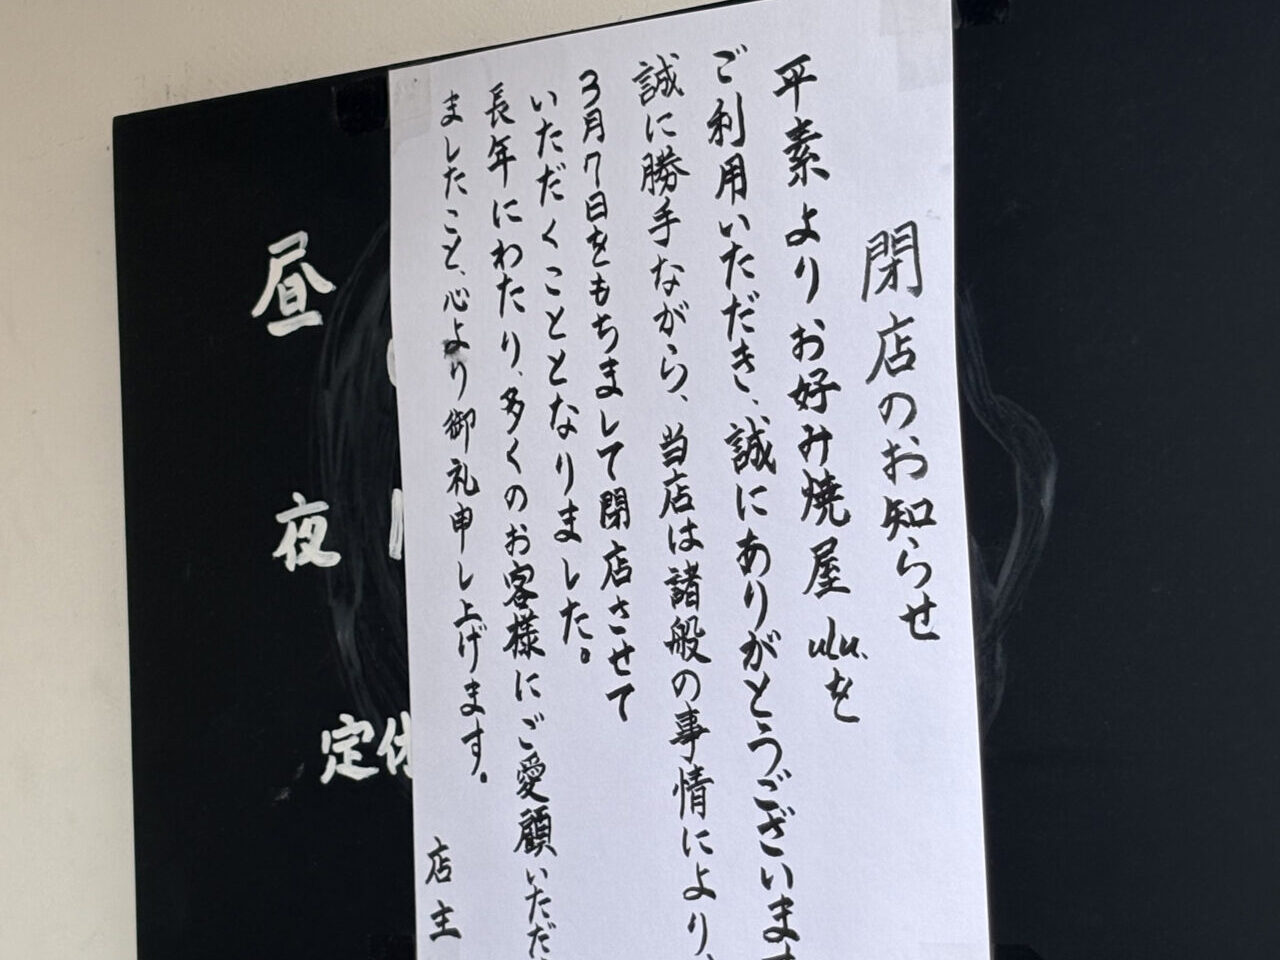 閉店のお知らせ
平素よりお好み焼屋 ulu.を
ご利用いただき、誠にありがとうございます
誠に勝手ながら、当店は諸般の事情により、
3月7日をもちまして閉店させて
いただくこととなりました。
長年にわたり、多くのお客様にご愛顧いただ
ましたこと、心より御礼申し上げます。
店主
昼
夜
定休